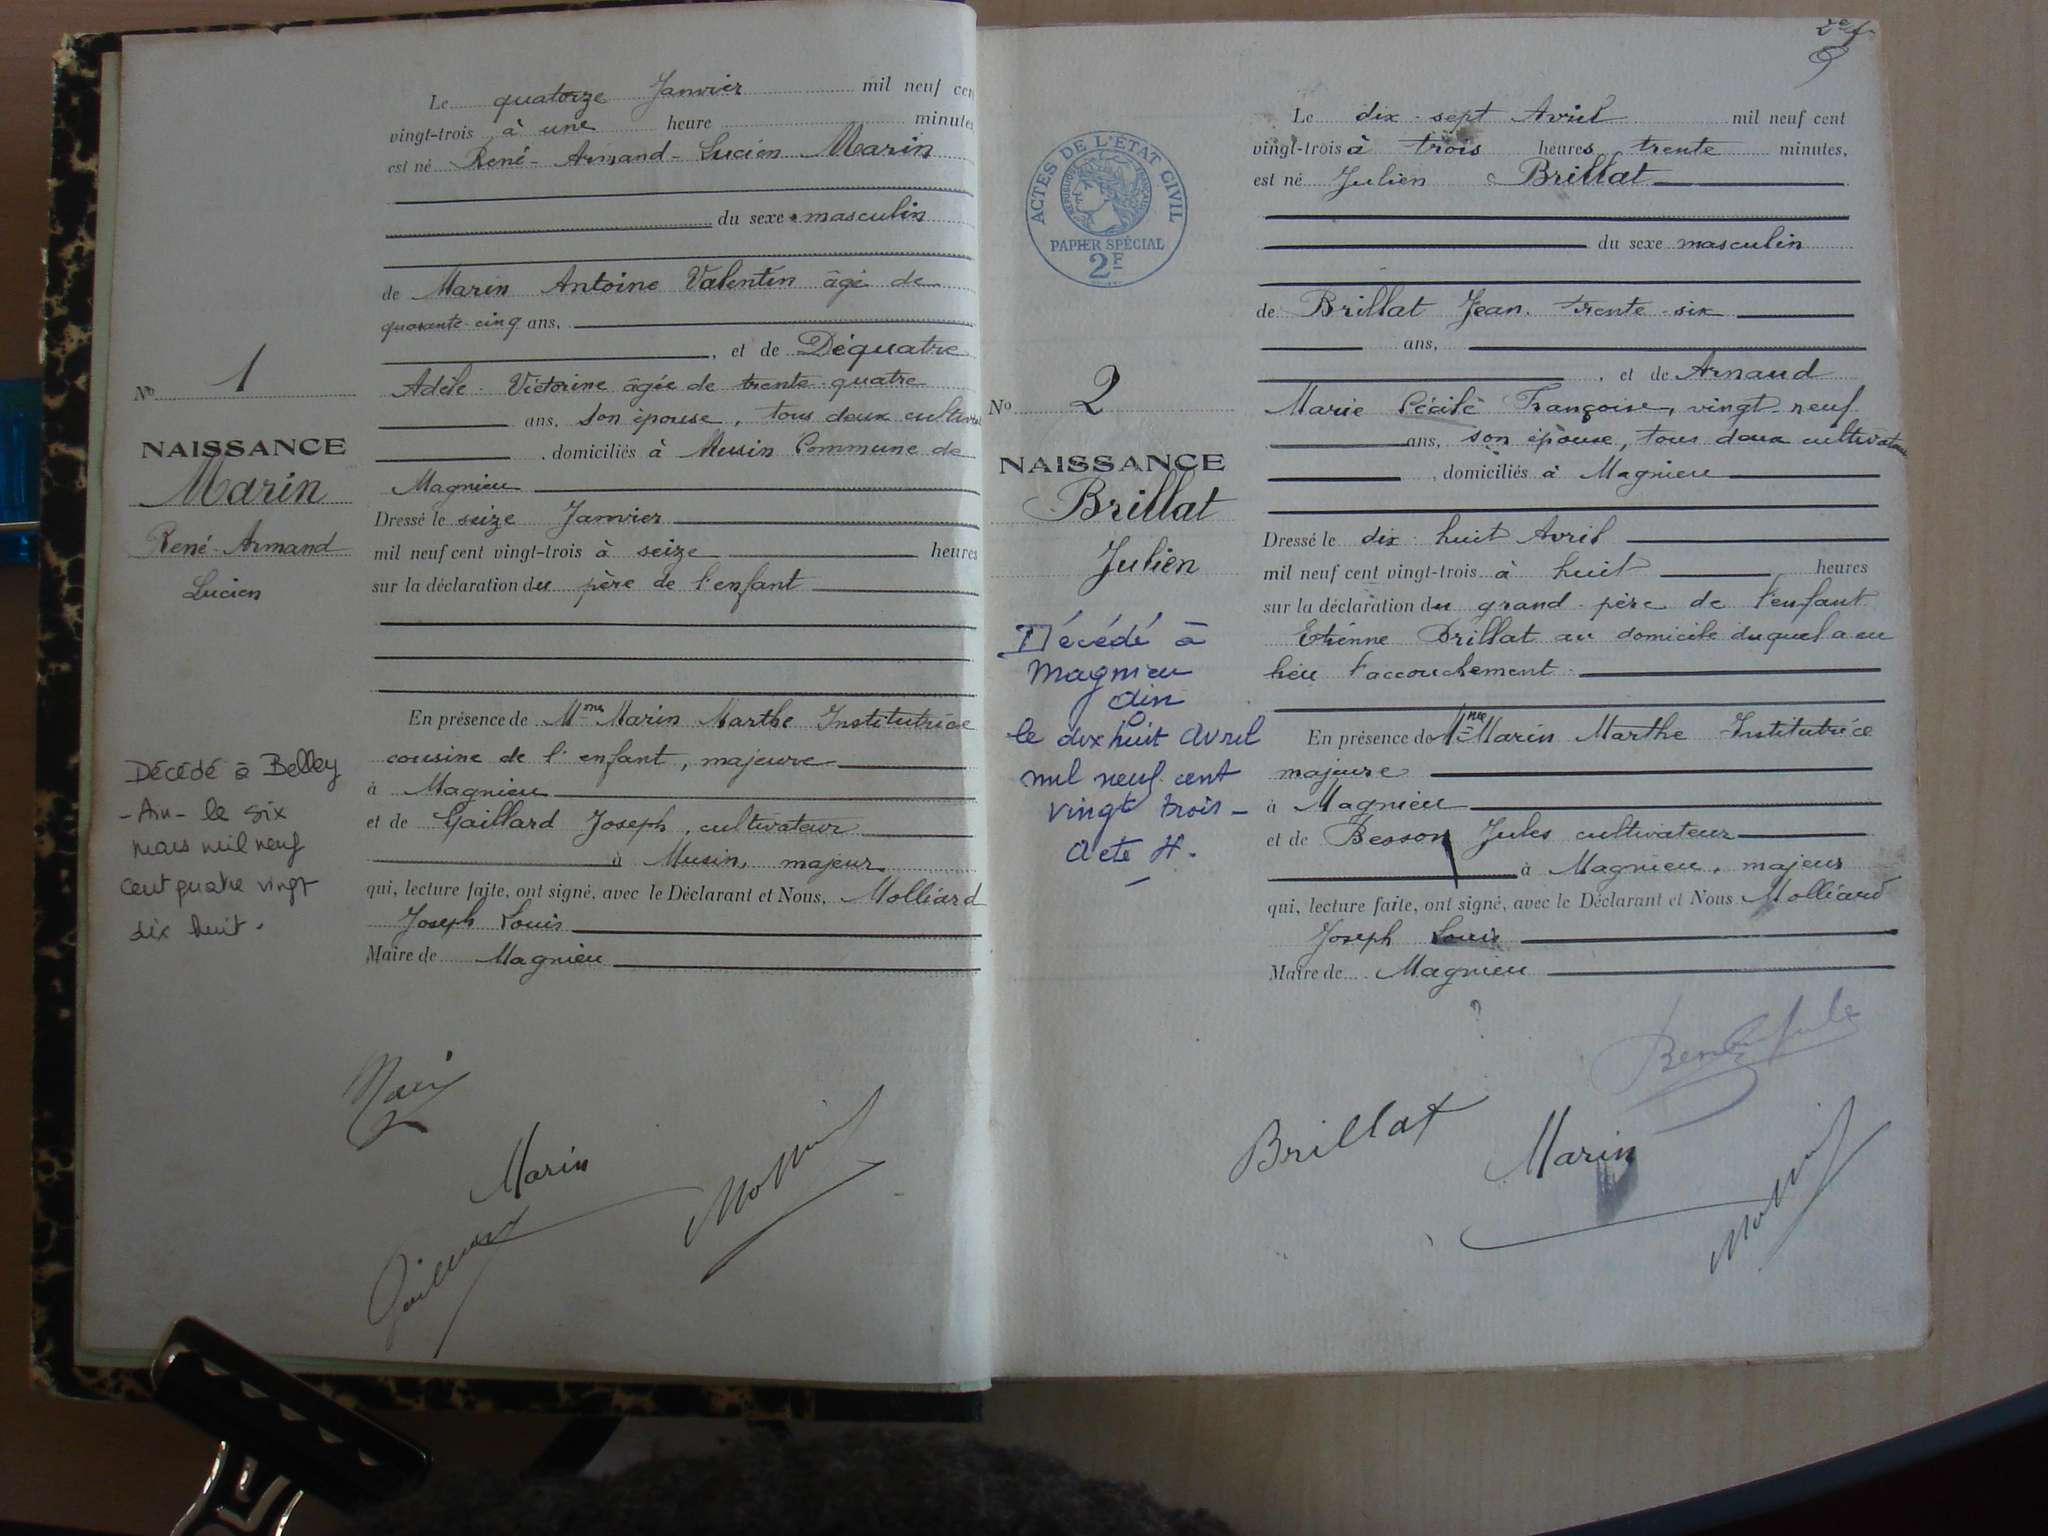 Le quatorze Janvier mil neuf cen
vingt-trois à une heure minutes
est né René-Armand-Lucien Marin
du sexe masculin
de Marin Antoine Valentin âgé de
quarante-cinq ans,
, et de Déquatre
Adèle-Victorine âgée de trente-quatre
ans, son épouse, tous deux cultiva
, domiciliés à Musin Commune de
Magnieu
Dressé le seize Janvier
mil neuf cent vingt-trois à seize heures
sur la déclaration du père de l'enfant
En présence de Mme Marin Marthe Institutrice
cousine de l'enfant, majeure
à Magnieu
et de Gaillard Joseph, cultivateur
à Musin, majeur
qui, lecture faite, ont signé, avec le Déclarant et Nous, Molliard
Joseph Louis
Maire de Magnieu
No 1
NAISSANCE
Marin
René-Armand
Lucien
Décédé à Belley
-Ain- le six
mars mil neuf
cent quatre vingt
dix huit.
Marin
Marin
Gaillard
Molliard
2e f.
ACTES DE L'ÉTAT CIVIL
RÉPUBLIQUE FRANÇAISE
PAPIER SPÉCIAL
2F
Le dix-sept Avril mil neuf cent
vingt-trois à trois heures trente minutes,
est né Julien Brillat
du sexe masculin
de Brillat Jean, trente-six
ans,
, et de Arnaud
Marie Cécile Françoise, vingt-neuf
ans, son épouse, tous deux cultivateurs
, domiciliés à Magnieu
Dressé le dix-huit Avril
mil neuf cent vingt-trois à huit heures
sur la déclaration du grand-père de l'enfant
Etienne Brillat au domicile duquel a eu
lieu l'accouchement
En présence de Mme Marin Marthe Institutrice
majeure
à Magnieu
et de Besson Jules cultivateur
à Magnieu, majeur
qui, lecture faite, ont signé, avec le Déclarant et Nous Molliard
Joseph Louis
Maire de Magnieu
No 2
NAISSANCE
Brillat
Julien
Décédé à
Magnieu
Ain
le dix huit avril
mil neuf cent
vingt trois -
acte 4.
Brillat
Marin
Molliard